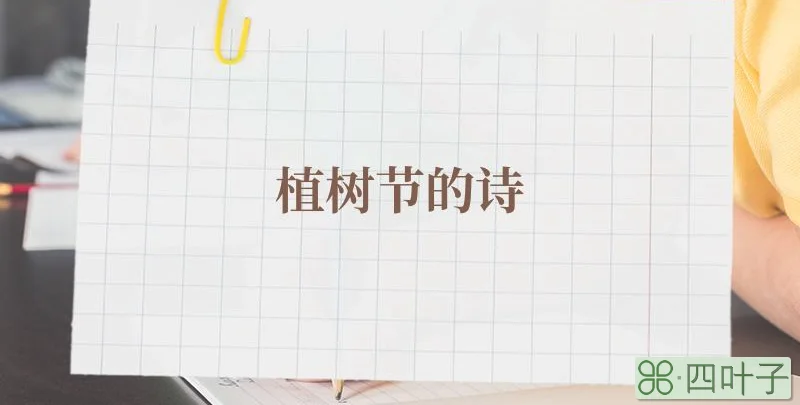 植树节的诗
四叶子